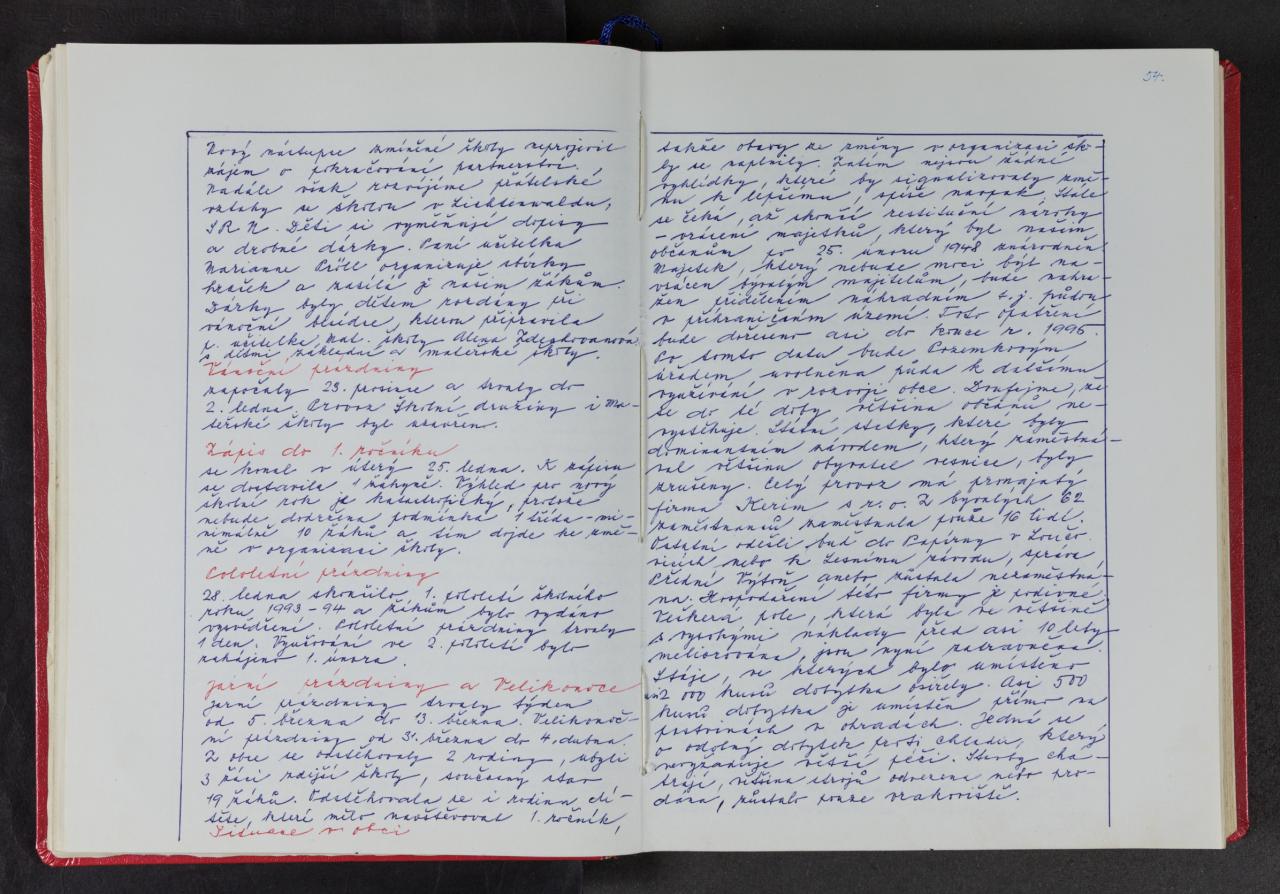 Nový nástupce zmíněné školy neprojevil
zájem o pokračování partnerství.
Nadále však rozvíjíme přátelské
vztahy se školou v Lichtenwaldu,
SRN. Děti si vyměňují dopisy
a drobné dárky. Paní učitelka
Marianne Pröll organizuje sbírky
hraček a zasílá je našim žákům.
Dárky byly dětem rozdány při
vánoční besídce, kterou připravila
p. učitelka mat. školy Alena
s dětmi základní a mateřské školy.
Vánoční prázdniny
započaly 23. prosince a trvaly do
2. ledna. Provoz školní družiny i ma-
teřské školy byl uzavřen.
Zápis do 1. ročníku
se konal v úterý 25. ledna. K zápisu
se dostavila 1 žákyně. Výhled pro nový
školní rok je katastrofický, protože
nebude dodržena podmínka 1 třída - mi-
nimálně 10 žáků a tím dojde ke změ-
ně v organisaci školy.
Pololetní prázdniny
28. ledna skončilo 1. pololetí školního
roku 1993-94 a žákům bylo vydáno
vysvědčení. Pololetní prázdniny trvaly
1 den. Vyučování ve 2. pololetí bylo
zahájeno 1. února.
Jarní prázdniny a Velikonoce
Jarní prázdniny trvaly týden
od 5. března do 13. března. Velikonoč-
ní prázdniny od 31. března do 4. dubna.
Z obce se odstěhovaly 2 rodiny, ubyli
3 žáci zdejší školy, současný stav
19 žáků. Odstěhovala se i rodina dí-
těte, které mělo navštěvovat 1. ročník,
Situace v obci
54.
takže obavy ze změny v organizaci ško-
ly se naplnily. Zatím nejsou žádné
vyhlídky, které by signalizovaly změ-
nu k lepšímu, spíše naopak. Stále
se čeká, až skončí restituční nároky
- vrácení majetků, který byl našim
občanům po 25. únoru 1948 znárodněn.
Majetek, který nebude moci být na-
vrácen bývalým majitelům, bude nahra-
zen přidělením náhradním t. j. půdou
v příhraničním území. Toto opatření
bude dořešeno asi do konce r. 1995.
Po tomto datu bude Pozemkovým
úřadem uvolněna půda k dalšímu
využívání v rozvoji obce. Doufejme, že
se do té doby většina občanů ne-
vystěhuje. Státní statky, které byly
dominantním závodem, který zaměstná-
val většinu obyvatel vesnice, byly
zrušeny. Celý provoz má pronajatý
firma Kerim s r. o. Z bývalých 62
zaměstnanců zaměstnala pouze 16 lidí.
Ostatní odešli buď do Papírny v Loučo-
vicích nebo k Lesnímu závodu, správa
Přední Výtoň anebo zůstala nezaměstná-
na. Hospodaření této firmy je podivné.
Veškerá pole, která byla ve většině
s vysokými náklady před asi 10 lety
meliorována, jsou nyní zatravněna.
Stáje, ve kterých bylo umístěno
až 2 000 kusů dobytka osiřely. Asi 500
kusů dobytka je umístěn přímo na
pastvinách v ohradách. Jedná se
o odolný dobytek proti chladu, který
nevyžaduje větší péči. Stavby cha-
trají, většina strojů odvezena nebo pro-
dána, zůstalo pouze vrakoviště.